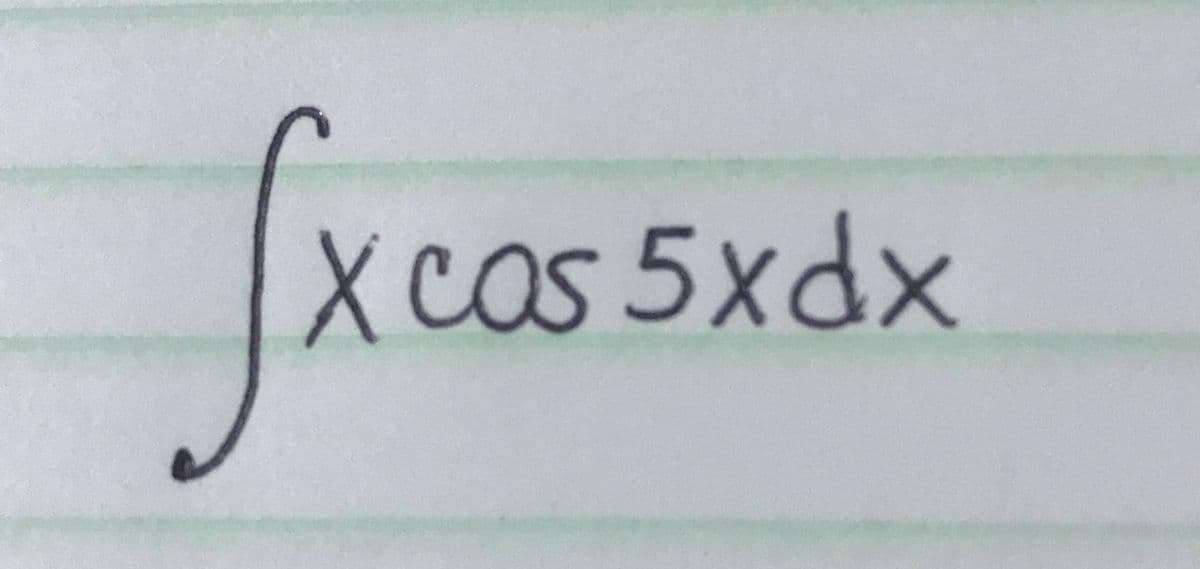 ∫x cos 5x dx